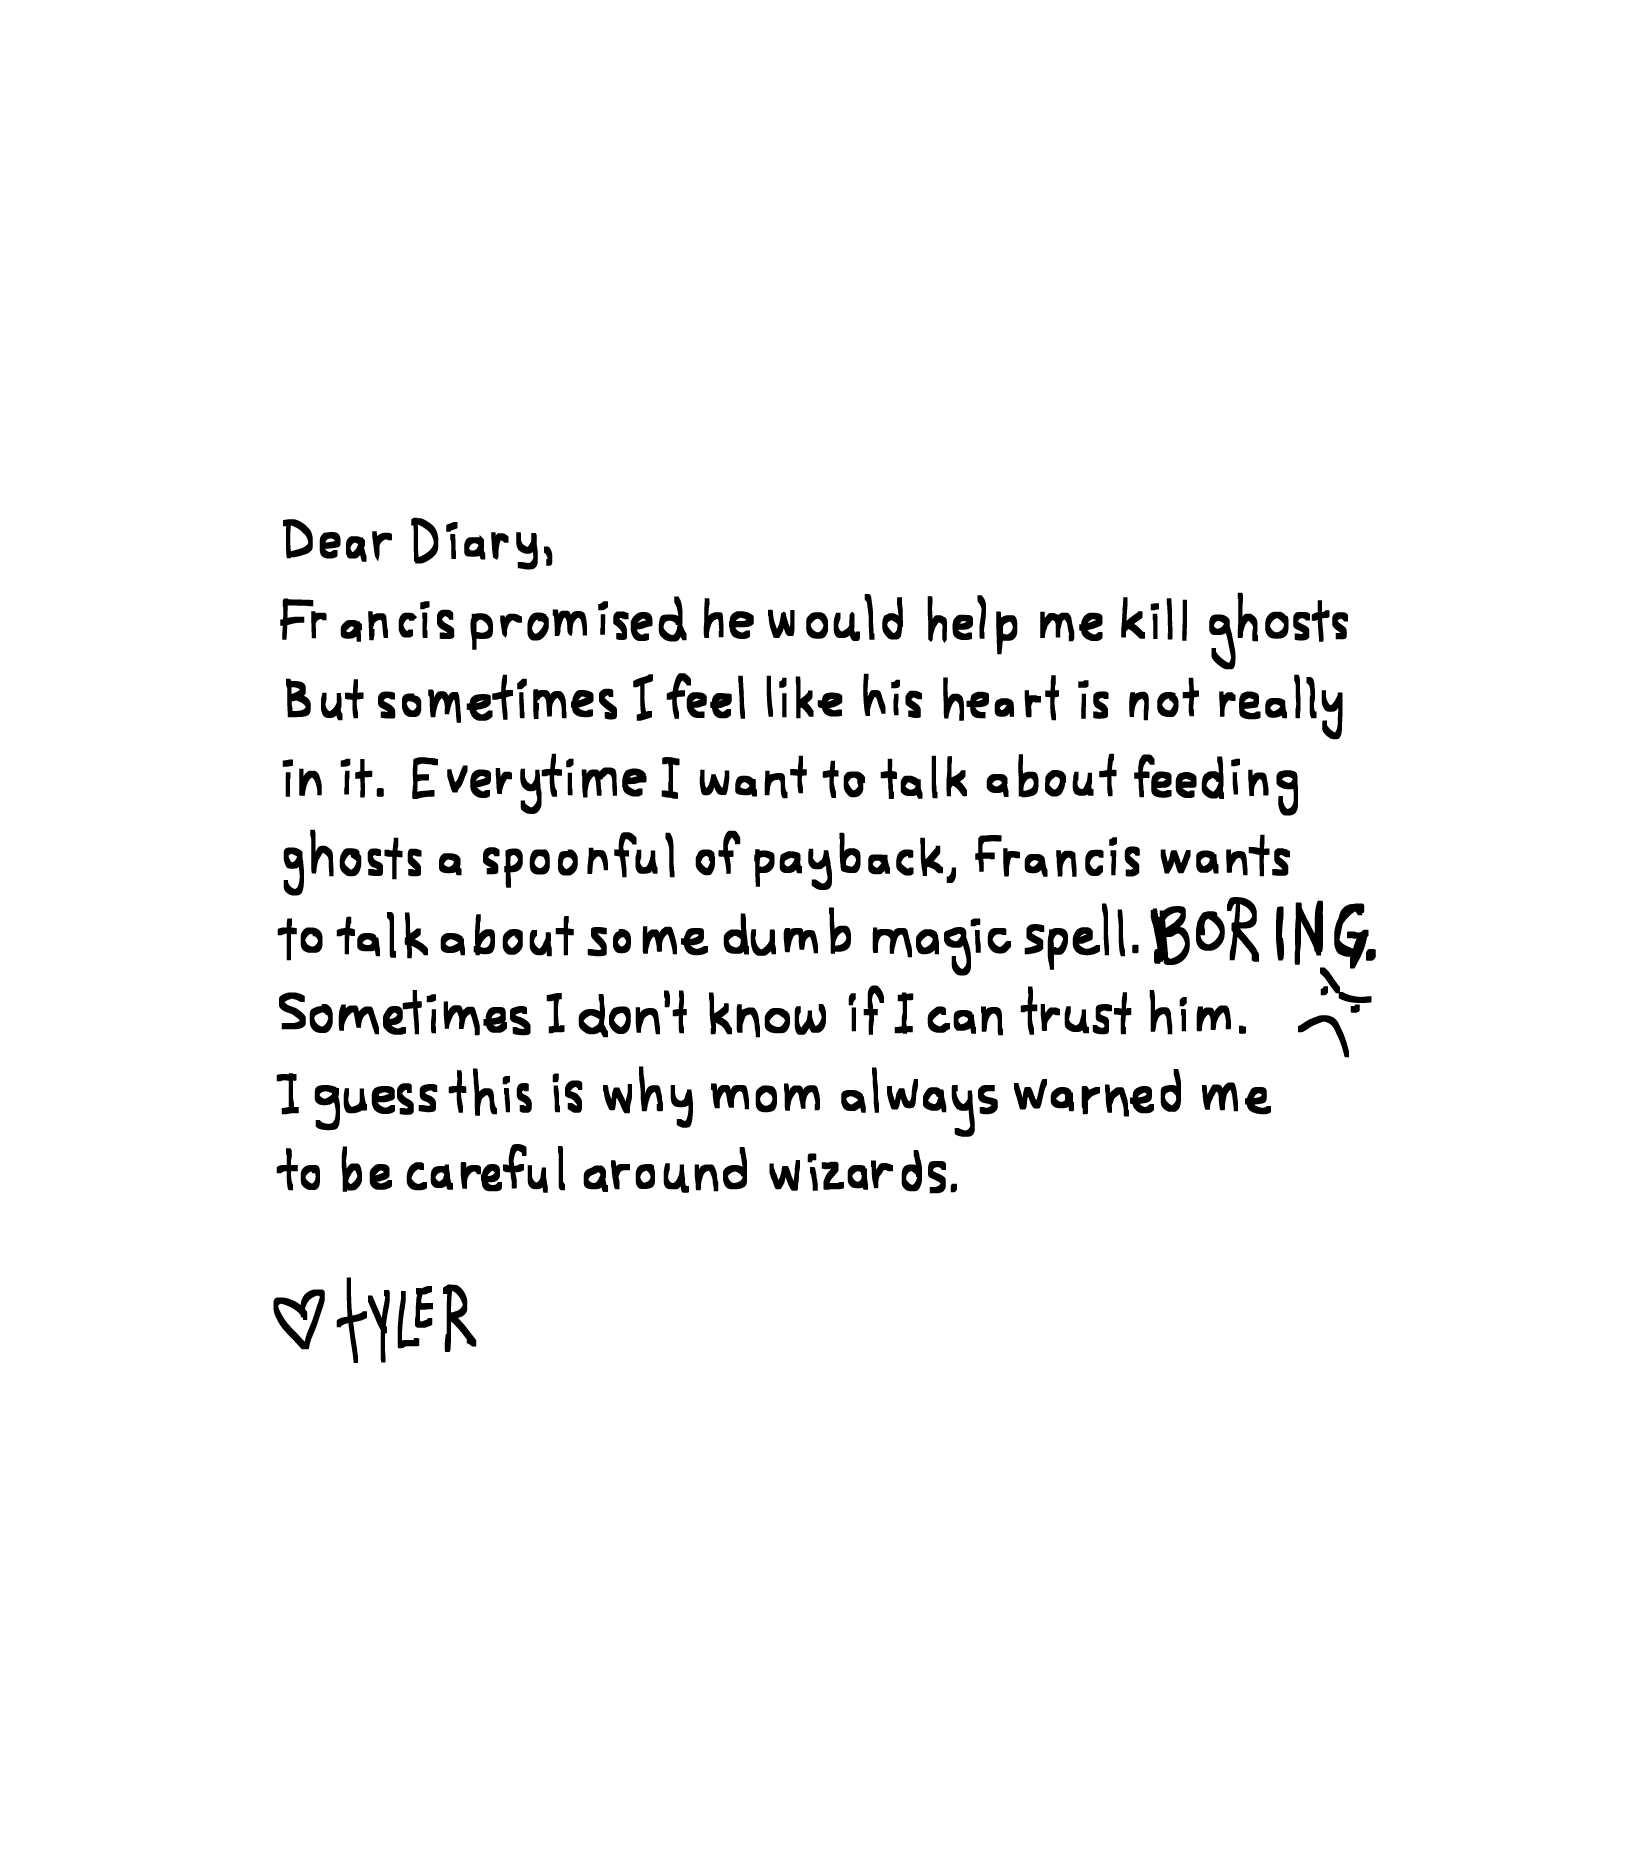 Dear Diary,
Francis promised he would help me kill ghosts
But sometimes I feel like his heart is not really
in it. Everytime I want to talk about feeding
ghosts a spoonful of payback, Francis wants
to talk about some dumb magic spell. BORING.
Sometimes I don't know if I can trust him.
I guess this is why mom always warned me
to be careful around wizards.
♡ tYLER